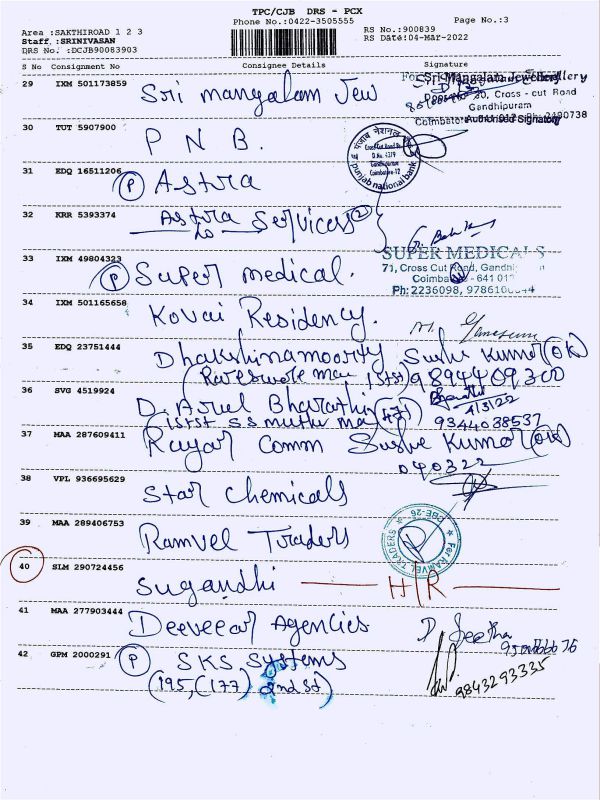 TPC/CJB DRS - PCX
Phone No.:0422-3505555 Page No.:3
Area :SAKTHIROAD 1 2 3 RS No.:900839
Staff :SRINIVASAN RS Date:04-Mar-2022
DRS No. :DCJB90083903
S No Consignment No Consignee Details Signature
29 IXM 501173859 Sri mangalam Jew
For Sri Mangalam Jewellery
30, Cross - cut Road
Gandhipuram
Authorised Signatory
30 TUT 5907900 P N B.
पंजाब नैशनल बैंक
Cross Cut Road
Coimbatore-12
punjab national bank
31 EDQ 16511206 (P) Astra
32 KRR 5393374 Astra Services (2)
33 IXM 49804323 (P) Super medical.
SUPER MEDICALS
71, Cross Cut Road,
Coimbatore - 641 012
Ph: 2236098,
34 IXM 501165658 Kovai Residency.
35 EDQ 23751444 Dhakshinamoorty Sushe Kumar (OK)
9894409300
36 SVG 4519924 D. Arul Bharathi
Bharathi
4/3/22
(1st st S S muthu
9344038537
37 MAA 287609411 Rayar Comm Sushe Kumar (OK)
040322
38 VPL 936695629 Star Chemicals
39 MAA 289406753 Ramvel Traders
For RAMVEL TRADERS ★ CBE-26 ★
40 SLM 290724456 Sugandhi H/R
41 MAA 277903444 Deeveear Agencies D Geetha
42 GPM 2000291 (P) SKS Systems
(195, (177) 2nd st)
9843293335